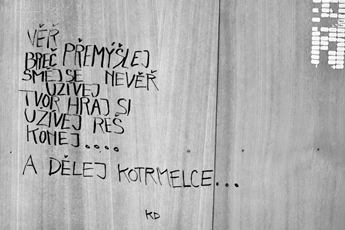 VĚŘ
BREČ PŘEMÝŠLEJ
SMEJ SE NEVĚŘ
UŽÍVEJ
TVOŘ HRAJ SI
UŽÍVEJ ŘEŠ
KONEJ....
A DĚLEJ KOTRMELCE...
KD